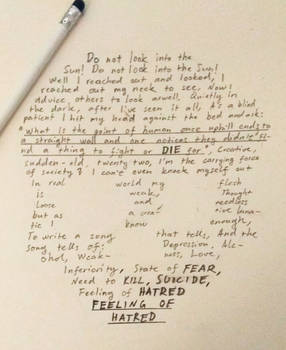 Do not look into the
Sun! Do not look into the Sun!
Well I reached out and looked, I
reached out my neck to see, Now I
advice, others to look as well. Quietly in
the dark, after I've seen it all, As a blind
patient I hit my head against the bed and ask:
"What is the point of human once uphill ends to
a straight wall and one notices they didn't
find a thing to fight or DIE for". Creative,
sudden-old, twenty two, I'm the carrying force
of society & I can't even knock myself out
In real world my flesh
is weak, Thought
loose and, needless
but as a
tic I know enough,
To write a song that tells, And the
song tells of: Depression, Alc-
ohol, Weak- ness, Love,
Inferiority, State of FEAR,
Need to KILL, SUICIDE,
Feeling of HATRED
FEELING OF
HATRED